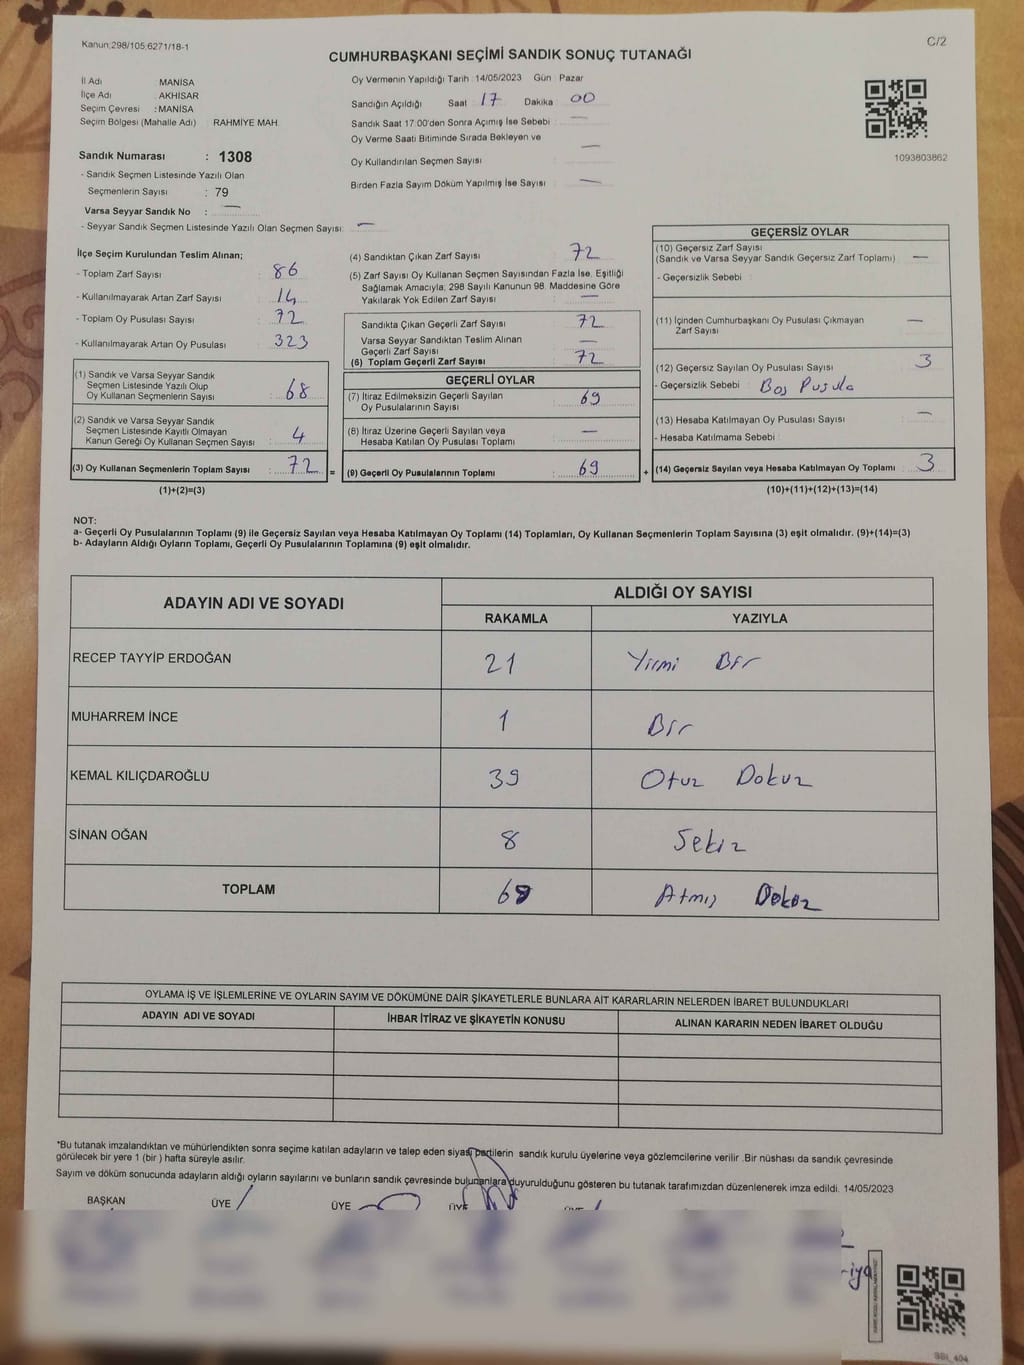 Kanun;298/105;6271/18-1
C/2
CUMHURBAŞKANI SEÇİMİ SANDIK SONUÇ TUTANAĞI
İl Adı MANİSA
İlçe Adı AKHİSAR
Seçim Çevresi : MANİSA
Seçim Bölgesi (Mahalle Adı) : RAHMİYE MAH.
Sandık Numarası : 1308
- Sandık Seçmen Listesinde Yazılı Olan
Seçmenlerin Sayısı : 79
Varsa Seyyar Sandık No : —
- Seyyar Sandık Seçmen Listesinde Yazılı Olan Seçmen Sayısı: —
Oy Vermenin Yapıldığı Tarih : 14/05/2023 Gün : Pazar
Sandığın Açıldığı Saat 17 Dakika 00
Sandık Saat 17:00'den Sonra Açımış İse Sebebi : —
Oy Verme Saati Bitiminde Sırada Bekleyen ve
Oy Kullandırılan Seçmen Sayısı : —
Birden Fazla Sayım Döküm Yapılmış İse Sayısı : —
1093803862
İlçe Seçim Kurulundan Teslim Alınan;
- Toplam Zarf Sayısı : 86
- Kullanılmayarak Artan Zarf Sayısı : 14
- Toplam Oy Pusulası Sayısı : 72
- Kullanılmayarak Artan Oy Pusulası : 323
(1) Sandık ve Varsa Seyyar Sandık
Seçmen Listesinde Yazılı Olup
Oy Kullanan Seçmenlerin Sayısı : 68
(2) Sandık ve Varsa Seyyar Sandık
Seçmen Listesinde Kayıtlı Olmayan
Kanun Gereği Oy Kullanan Seçmen Sayısı : 4
(3) Oy Kullanan Seçmenlerin Toplam Sayısı : 72
(1)+(2)=(3)
(4) Sandıktan Çıkan Zarf Sayısı : 72
(5) Zarf Sayısı Oy Kullanan Seçmen Sayısından Fazla İse, Eşitliği
Sağlamak Amacıyla; 298 Sayılı Kanunun 98. Maddesine Göre
Yakılarak Yok Edilen Zarf Sayısı : —
Sandıkta Çıkan Geçerli Zarf Sayısı : 72
Varsa Seyyar Sandıktan Teslim Alınan
Geçerli Zarf Sayısı : —
(6) Toplam Geçerli Zarf Sayısı : 72
GEÇERLİ OYLAR
(7) İtiraz Edilmeksizin Geçerli Sayılan
Oy Pusulalarının Sayısı : 69
(8) İtiraz Üzerine Geçerli Sayılan veya
Hesaba Katılan Oy Pusulası Toplamı : —
= (9) Geçerli Oy Pusulalarının Toplamı : 69
GEÇERSİZ OYLAR
(10) Geçersiz Zarf Sayısı
(Sandık ve Varsa Seyyar Sandık Geçersiz Zarf Toplamı) : —
- Geçersizlik Sebebi :
(11) İçinden Cumhurbaşkanı Oy Pusulası Çıkmayan
Zarf Sayısı : —
(12) Geçersiz Sayılan Oy Pusulası Sayısı : 3
- Geçersizlik Sebebi : Boş Pusula
(13) Hesaba Katılmayan Oy Pusulası Sayısı : —
- Hesaba Katılmama Sebebi :
+ (14) Geçersiz Sayılan veya Hesaba Katılmayan Oy Toplamı : 3
(10)+(11)+(12)+(13)=(14)
NOT:
a- Geçerli Oy Pusulalarının Toplamı (9) ile Geçersiz Sayılan veya Hesaba Katılmayan Oy Toplamı (14) Toplamları, Oy Kullanan Seçmenlerin Toplam Sayısına (3) eşit olmalıdır. (9)+(14)=(3)
b- Adayların Aldığı Oyların Toplamı, Geçerli Oy Pusulalarının Toplamına (9) eşit olmalıdır.
ADAYIN ADI VE SOYADI ALDIĞI OY SAYISI
RAKAMLA YAZIYLA
RECEP TAYYİP ERDOĞAN 21 Yirmi Bir
MUHARREM İNCE 1 Bir
KEMAL KILIÇDAROĞLU 39 Otuz Dokuz
SİNAN OĞAN 8 Sekiz
TOPLAM 69 Atmış Dokuz
OYLAMA İŞ VE İŞLEMLERİNE VE OYLARIN SAYIM VE DÖKÜMÜNE DAİR ŞİKAYETLERLE BUNLARA AİT KARARLARIN NELERDEN İBARET BULUNDUKLARI
ADAYIN ADI VE SOYADI İHBAR İTİRAZ VE ŞİKAYETİN KONUSU ALINAN KARARIN NEDEN İBARET OLDUĞU
*Bu tutanak imzalandıktan ve mühürlendikten sonra seçime katılan adayların ve talep eden siyasi partilerin sandık kurulu üyelerine veya gözlemcilerine verilir .Bir nüshası da sandık çevresinde
görülecek bir yere 1 (bir ) hafta süreyle asılır.
Sayım ve döküm sonucunda adayların aldığı oyların sayılarını ve bunların sandık çevresinde bulunanlara duyurulduğunu gösteren bu tutanak tarafımızdan düzenlenerek imza edildi. 14/05/2023
BAŞKAN ÜYE ÜYE ÜYE